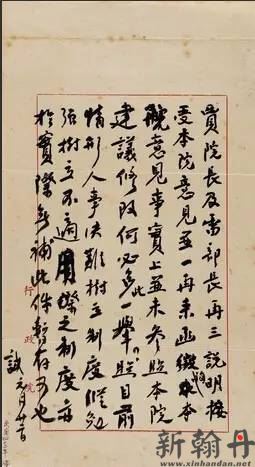 貴院長及雷部長再三說明接
受本院意見並一再來函徵本
院意見事實上並未參照本院
建議修改何必多此一舉照目前
情形人事決難樹立制度縱勉
強樹立不適用際之制度亦
於實際無補此件暫存可也
誠 元月廿二日
行政院
新翰丹
www.xinhandan.net